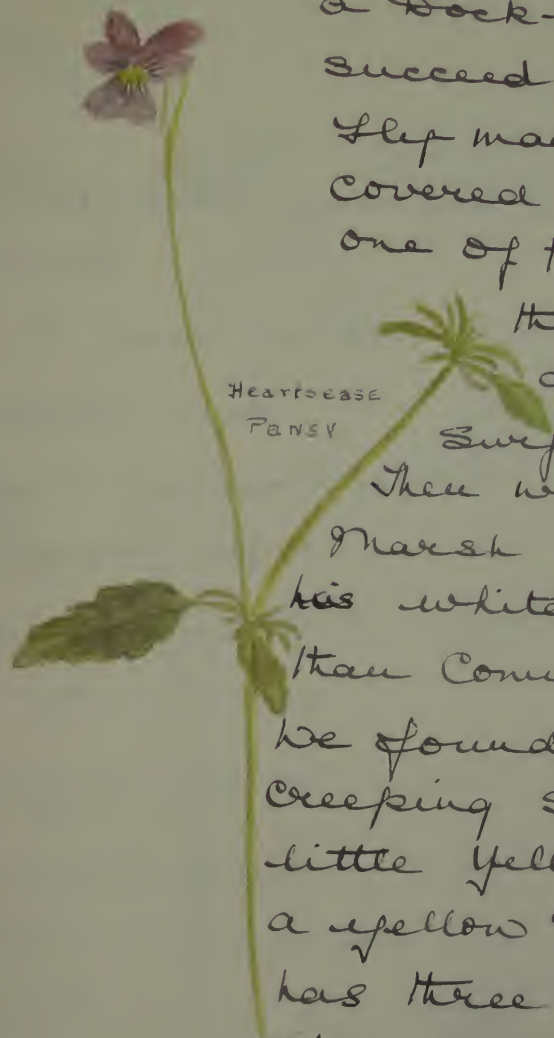 a Dock-
succeed
They ma
covered
one of t
th
Heartsease
Pansy
Surf
Then w
Marsh
his white
than Com
We found
creeping s
little yell
a yellow
has three